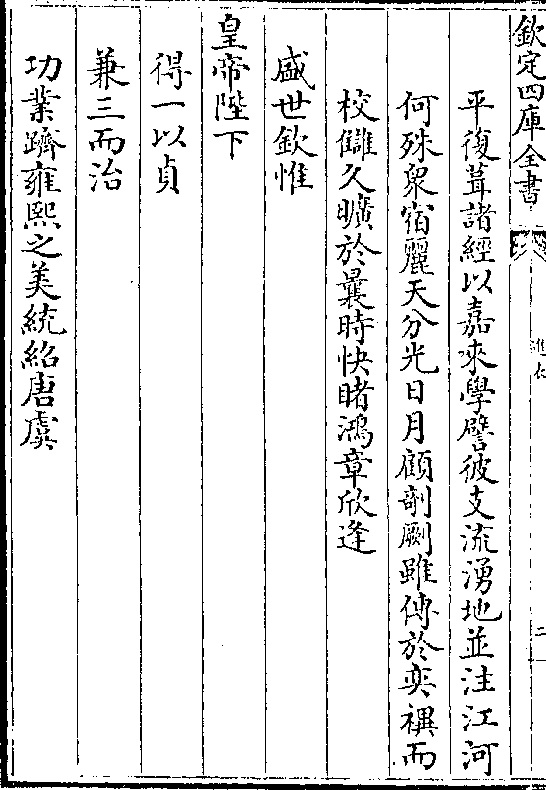 欽定四庫全書
進表
二
平復葺諸經以嘉來學譬彼支流湧地並注江河
何殊衆宿麗天分光日月顧剞劂雖傳於奕禩而
校讎久曠於曩時快睹鴻章欣逢
盛世欽惟
皇帝陛下
得一以貞
兼三而治
功業躋雍熙之美統紹唐虞